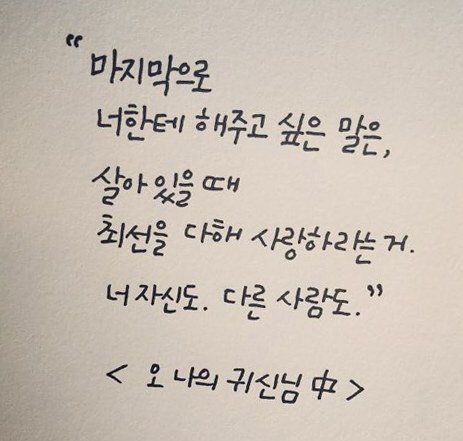 “마지막으로
너한테 해주고 싶은 말은,
살아 있을 때
최선을 다해 사랑하라는 거.
너 자신도. 다른 사람도.”
< 오 나의 귀신님 中 >